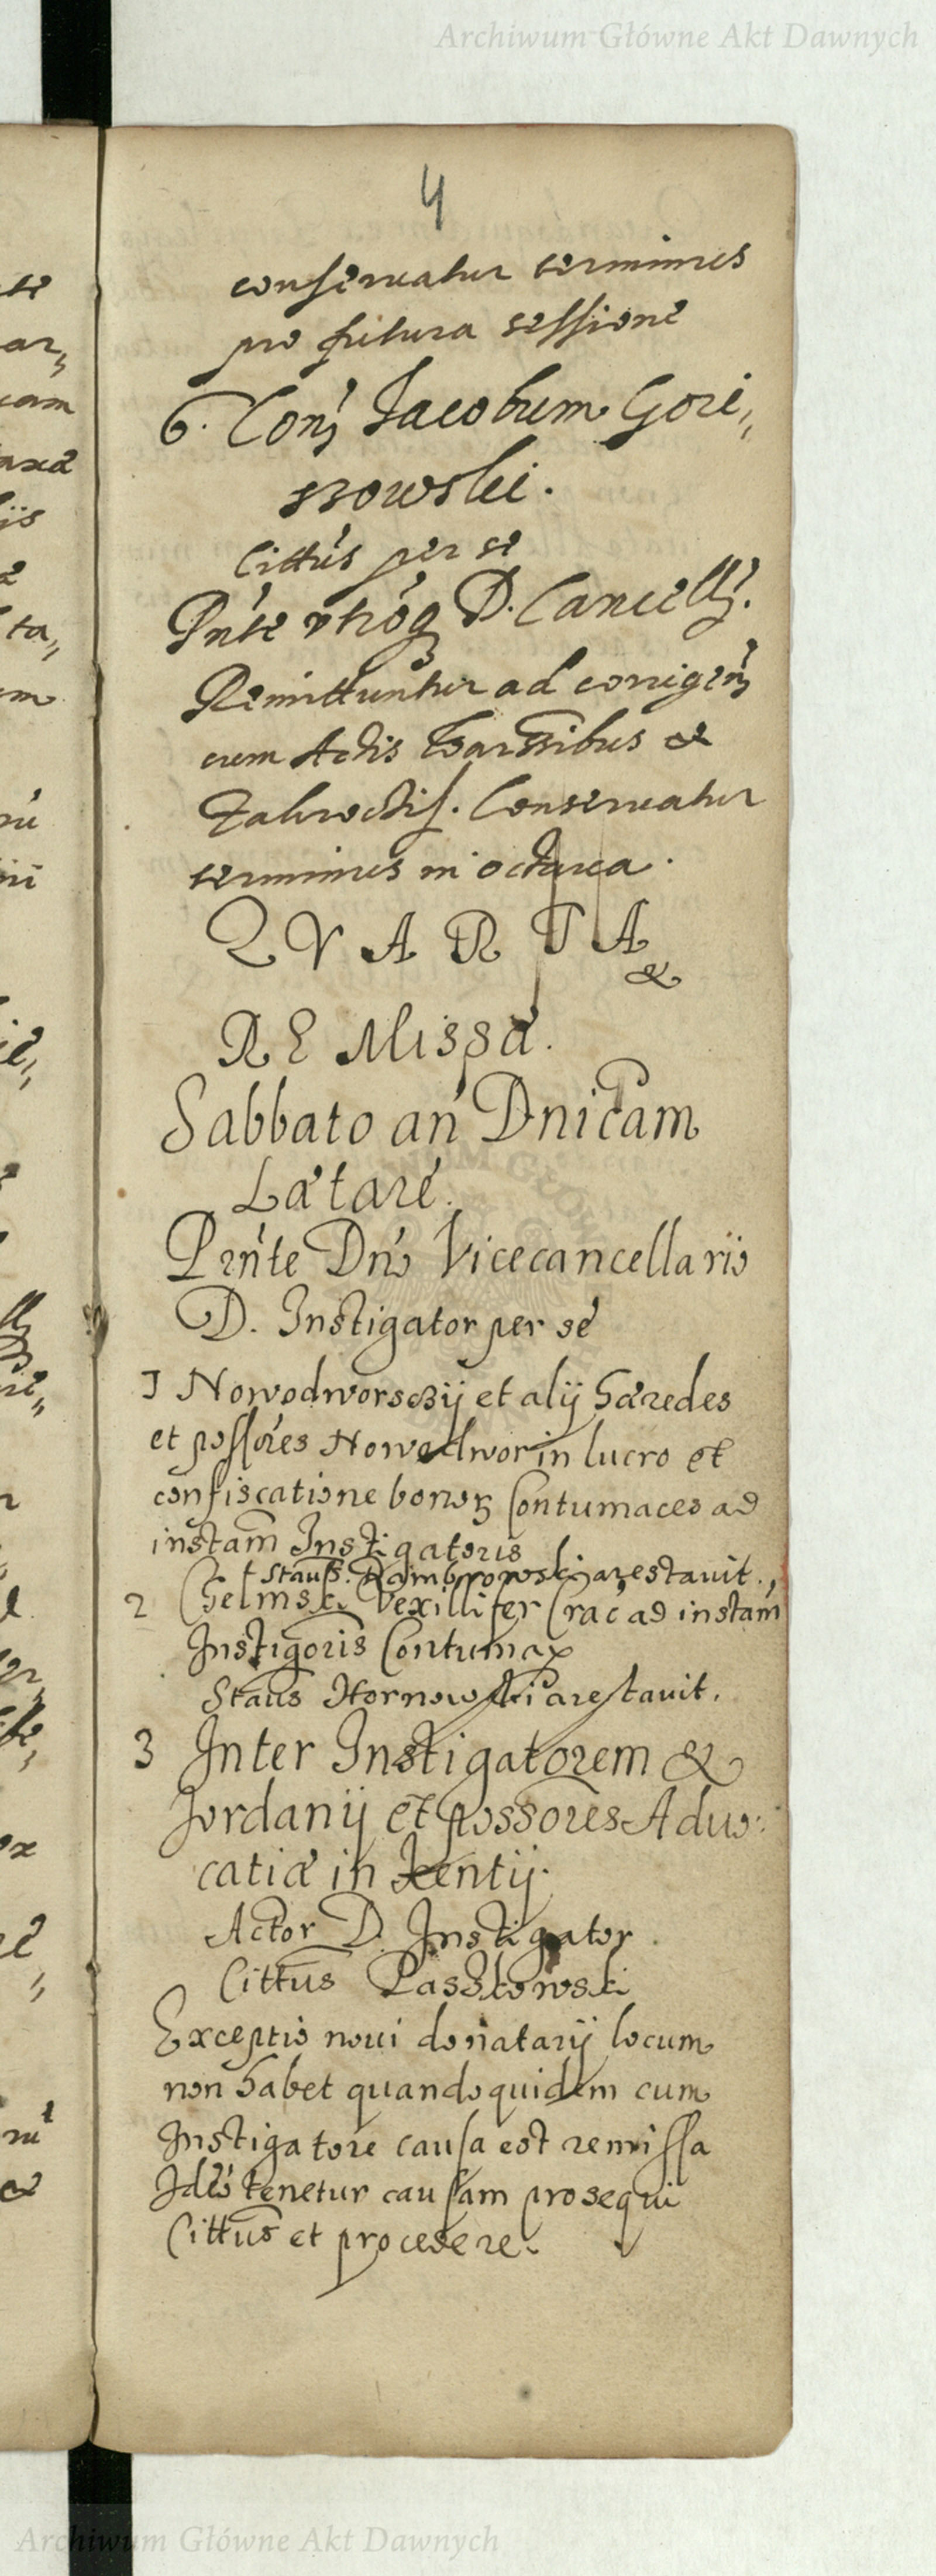 Archiwum Główne Akt Dawnych
4
te
ar,,
cam
axa
ijs
ta,,
em
conseruatur terminus
pro futura sessione
6. Con; Jacobum Gori,,
szowski.
Cittús per se
Pnte vtróq D. Cancellj.
Remittuntur ad corrigen
cum Actis Varssibus &
Zakroctis. Conseruatur
terminus in octaua.
QVARTA
&
RE Missa.
Sabbato an Dnicam
Lætare.
Pnte Dno Vicecancellario
D. Instigator per se
1 Nowodworsczij et alij hæredes
et possores Nowodwor in lucro et
confiscatione bonor contumaces ad
instam Instigatoris
Staus. Dąmbrowski arestauit.
2 Chelmski Vexillifer Crac ad instam
Instigoris Contumax
Staus Hornowski arestauit.
3 Inter Instigatorem &
Jordanij et possores Aduo:
catiæ in Kentij.
Actor D. Instigator
Cittus Paszkowski
Exceptio noui donatarij locum
non habet quandoquidem cum
Instigatore causa est remissa
Ideo tenetur causam prosequi
Cittus et procedere.
Archiwum Główne Akt Dawnych